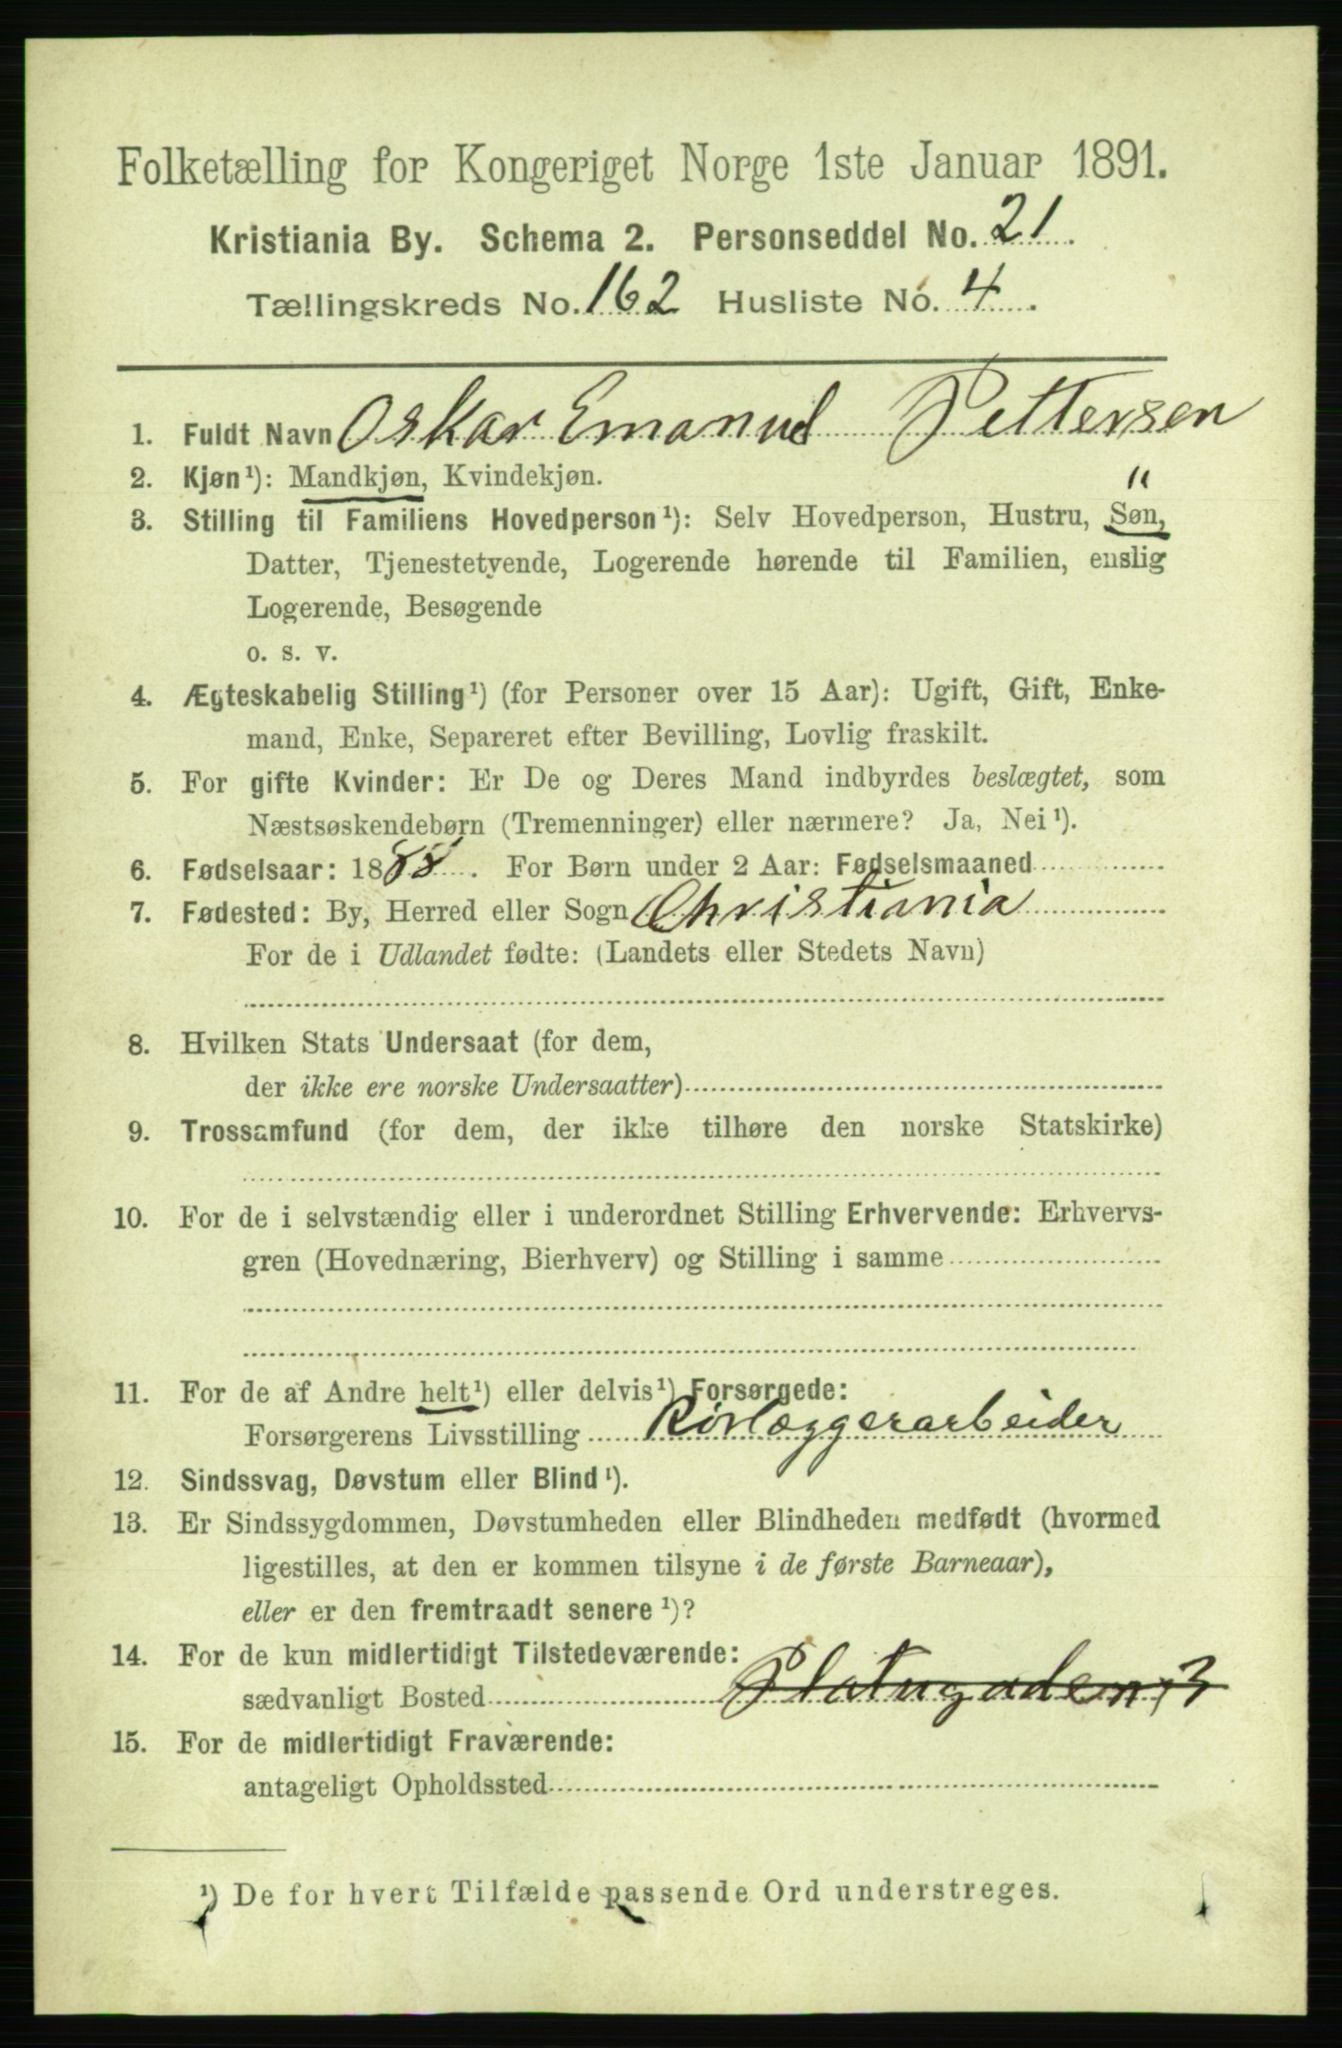 Folketælling for Kongeriget Norge 1ste Januar 1891.
Kristiania By. Schema 2. Personseddel No. 21.
Tællingskreds No. 162 Husliste No. 4.
1. Fuldt Navn Oskar Emanuel Pettersen
2. Kjøn¹): Mandkjøn, Kvindekjøn.
"
3. Stilling til Familiens Hovedperson¹): Selv Hovedperson, Hustru, Søn,
Datter, Tjenestetyende, Logerende hørende til Familien, enslig
Logerende, Besøgende
o. s. v.
4. Ægteskabelig Stilling¹) (for Personer over 15 Aar): Ugift, Gift, Enke-
mand, Enke, Separeret efter Bevilling, Lovlig fraskilt.
5. For gifte Kvinder: Er De og Deres Mand indbyrdes beslægtet, som
Næstsøskendebørn (Tremenninger) eller nærmere? Ja, Nei¹).
6. Fødselsaar: 1888. For Børn under 2 Aar: Fødselsmaaned
7. Fødested: By, Herred eller Sogn Christiania
For de i Udlandet fødte: (Landets eller Stedets Navn)
8. Hvilken Stats Undersaat (for dem,
der ikke ere norske Undersaatter)
9. Trossamfund (for dem, der ikke tilhøre den norske Statskirke)
10. For de i selvstændig eller i underordnet Stilling Erhvervende: Erhvervs-
gren (Hovednæring, Bierhverv) og Stilling i samme
11. For de af Andre helt¹) eller delvis¹) Forsørgede:
Forsørgerens Livsstilling Rørlæggerarbeider
12. Sindssvag, Døvstum eller Blind¹).
13. Er Sindssygdommen, Døvstumheden eller Blindheden medfødt (hvormed
ligestilles, at den er kommen tilsyne i de første Barneaar),
eller er den fremtraadt senere¹)?
14. For de kun midlertidigt Tilstedeværende:
sædvanligt Bosted 
15. For de midlertidigt Fraværende:
antageligt Opholdssted
¹) De for hvert Tilfælde passende Ord understreges.